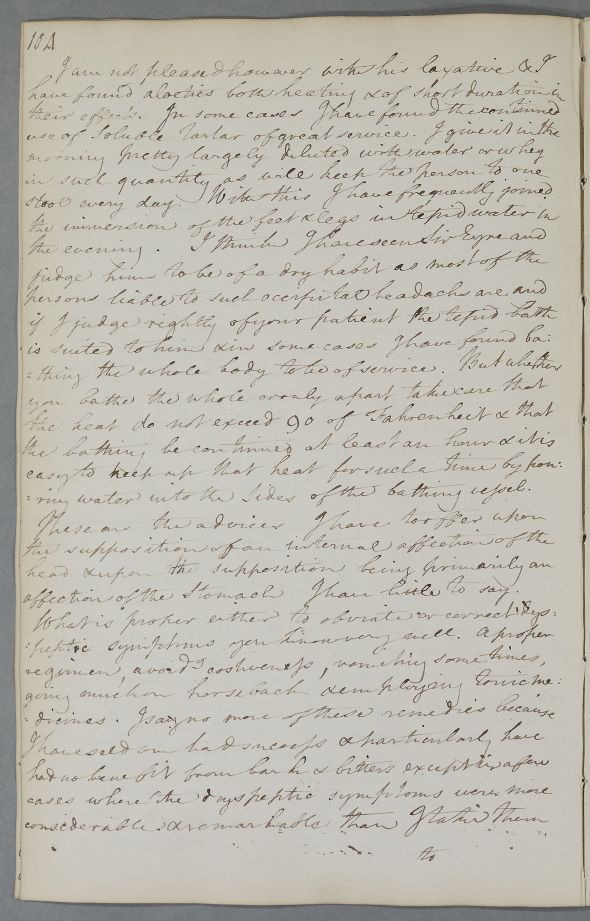 184
I am not pleased however with his laxative & I
have found aloetics both heating & of short duration in
their effects. In some cases I have found the continued
use of Soluble Tartar of great service. I give it in the
morning pretty largely diluted with water or whey
in such quantity as will keep the person to one
stool every day. With this I have frequently joined
the immersion of the feet & legs in tepid water in
the evening. I think I have seen Sir Eyre and
judge him to be of a dry habit as most of the
persons liable to such occipital headachs are, and
if I judge rightly of your patient the tepid bath
is suited to him & in some cases I have found ba:
=thing the whole body to be of service. But whether
you bathe the whole or only a part take care that
the heat do not exceed 90 of Fahrenheit & that
the bathing be continued at least an hour & it is
easy to keep up that heat for such a time by pou:
=ring water into the Sides of the bathing vessel.
These are the advices I have to offer upon
the supposition of an internal affection of the
head & upon the supposition being primarily an
affection of the Stomach I have little to say.
What is proper either to obviate or correct dys:
:peptic symptoms you know very well. A proper
regimen, avoidg costiveness, vomiting some times,
going much on horseback & employing tonic me:
:dicines. I say no more of these remedies because
I have seldom had success & particularly have
had no benefit from bark & bitters except in a few
cases where the dyspeptic symptoms were more
considerable & remarkable than I take them
to